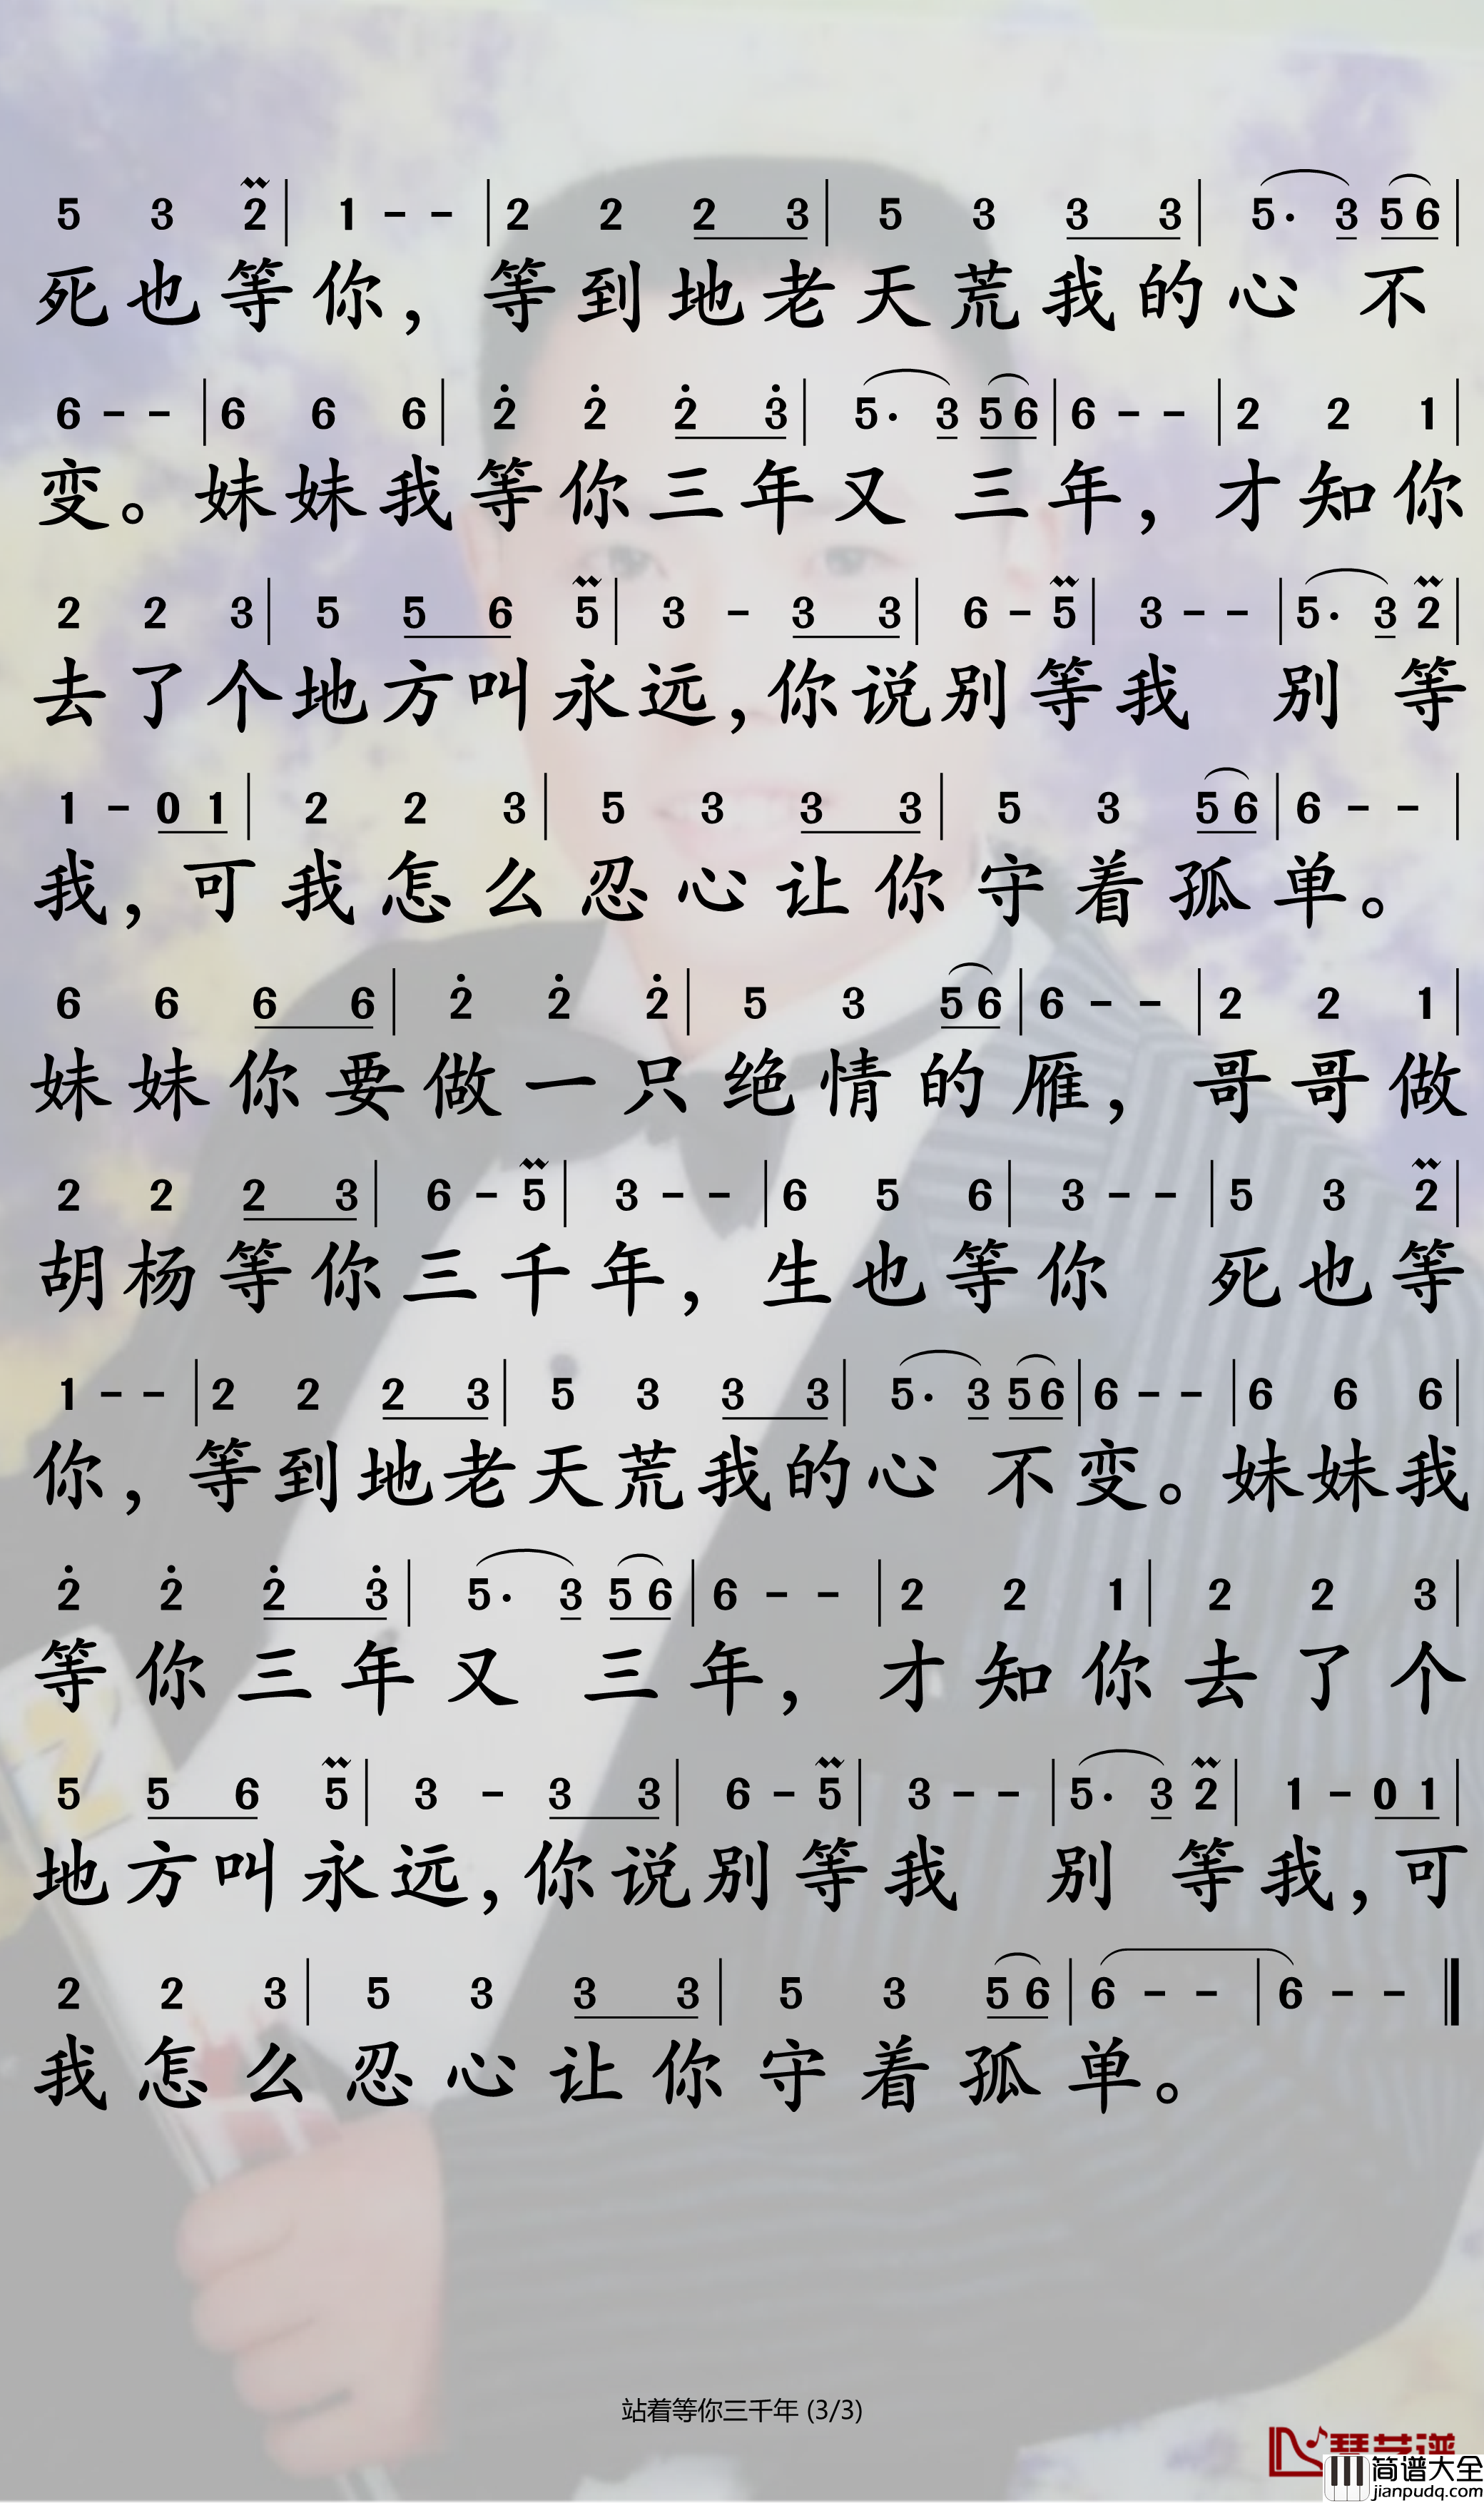 5 3 2 | 1 - - | 2 2 2 3 | 5 3 3 3 | 5· 3 5 6 |
死也等你，等到地老天荒我的心 不
6 - - | 6 6 6 | 2̇ 2̇ 2̇ 3̇ | 5· 3 5 6 | 6 - - | 2 2 1 |
变。妹妹我等你三年又 三年，才知你
2 2 3 | 5 5 6 5 | 3 - 3 3 | 6 - 5 | 3 - - | 5· 3 2 |
去了个地方叫永远，你说别等我 别 等
1 - 0 1 | 2 2 3 | 5 3 3 3 | 5 3 5 6 | 6 - - |
我，可我怎么忍心让你守着孤单。
6 6 6 6 | 2̇ 2̇ 2̇ | 5 3 5 6 | 6 - - | 2 2 1 |
妹妹你要做一只绝情的雁，哥哥做
2 2 2 3 | 6 - 5 | 3 - - | 6 5 6 | 3 - - | 5 3 2 |
胡杨等你三千年，生也等你 死也等
1 - - | 2 2 2 3 | 5 3 3 3 | 5· 3 5 6 | 6 - - | 6 6 6 |
你，等到地老天荒我的心 不变。妹妹我
2̇ 2̇ 2̇ 3̇ | 5· 3 5 6 | 6 - - | 2 2 1 | 2 2 3 |
等你三年又 三年，才知你去了个
5 5 6 5 | 3 - 3 3 | 6 - 5 | 3 - - | 5· 3 2 | 1 - 0 1 |
地方叫永远，你说别等我 别 等我，可
2 2 3 | 5 3 3 3 | 5 3 5 6 | 6 - - | 6 - - ‖
我怎么忍心让你守着孤单。
站着等你三千年 (3/3)
简谱大全
jianpudq.com